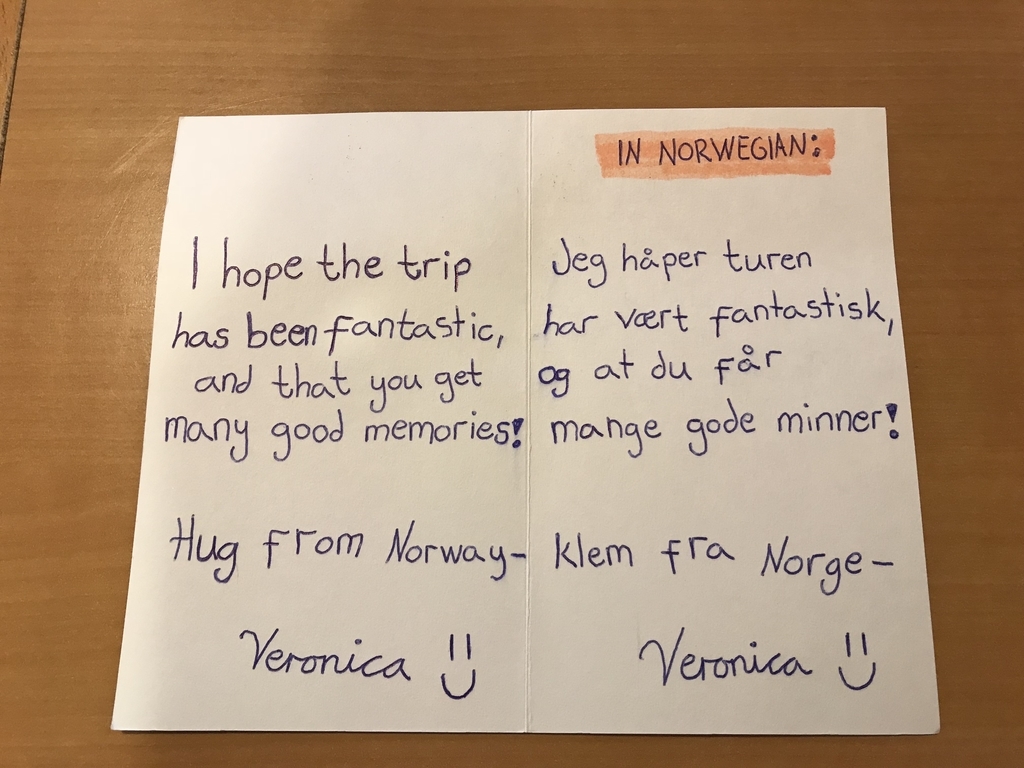 I hope the trip
has been fantastic,
and that you get
many good memories!
Hug from Norway-
Veronica
IN NORWEGIAN:
Jeg håper turen
har vært fantastisk,
og at du får
mange gode minner!
Klem fra Norge-
Veronica